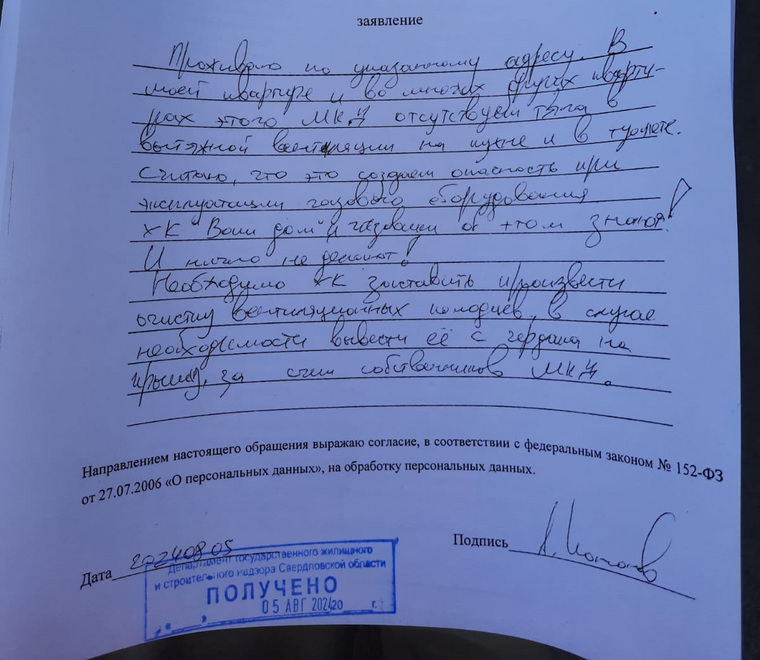 заявление
Проживаю по указанному адресу. В
моей квартире и во многих других кварти-
рах этого МКД отсутствует тяга в
вытяжной вентиляции на кухне и в туалете.
Считаю, что это создаёт опасность при
эксплуатации газового оборудования
ЖК "Ваш дом" и газовики об этом знают!
И ничего не делают!
Необходимо ЖК заставить произвести
очистку вентиляционных колодцев, в случае
необходимости вывести её с чердака на
крышу, за счёт собственников МКД.
Направлением настоящего обращения выражаю согласие, в соответствии с федеральным законом № 152-ФЗ
от 27.07.2006 «О персональных данных», на обработку персональных данных.
Дата 20240805
Подпись
Департамент государственного жилищного
и строительного надзора Свердловской области
ПОЛУЧЕНО
05 АВГ 2024 20 г.